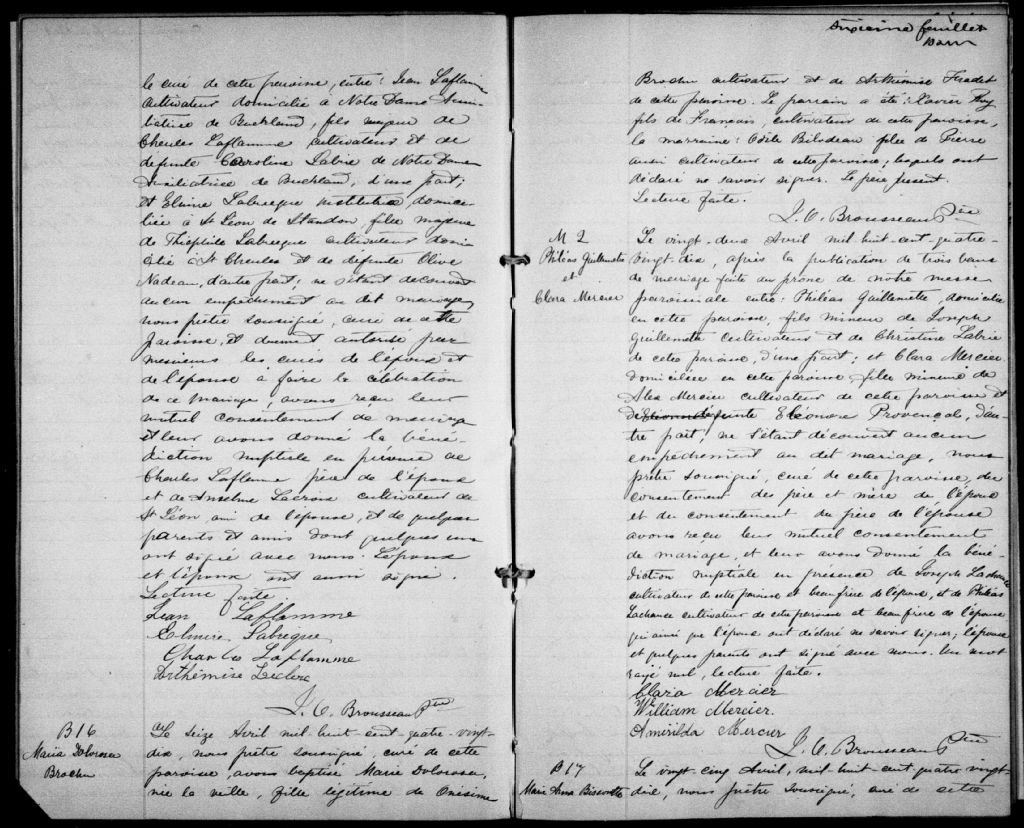 le curé de cette paroisse, entre: Jean Laflamme
cultivateur domicilié à Notre Dame Auxi-
liatrice de Buckland, fils majeur de
Charles Laflamme cultivateur et de
defunte Caroline Labrie de Notre Dame
Auxiliatrice de Buckland, d'une part;
et Elmire Labrecque institutrice domici-
liée à St Léon de Standon, fille majeure
de Théophile Labrecque cultivateur domi-
cilié à St Charles et de defunte Olive
Nadeau, d'autre part; ne s'étant découvert
aucun empêchement au dit mariage
nous prêtre soussigné, curé de cette
paroisse, et dument autorisé par
messieurs les curés de l'époux et
de l'épouse à faire la célébration
de ce mariage, avons reçu leur
mutuel consentement de mariage
et leur avons donné la béné-
diction nuptiale en présence de
Charles Laflamme père de l'époux
et de Anselme Lacroix cultivateur de
St Léon, ami de l'épouse, et de quelques
parents et amis dont quelques uns
ont signé avec nous. L'époux
et l'épouse ont aussi signé.
Lecture faite.
Jean Laflamme
Elmire Labrecque
Charles Laflamme
Arthémise Leclerc
J. O. Brousseau Ptre
B 16
Maria Dolorosa
Brochu
Le seize Avril mil-huit-cent-quatre-vingt-
dix, nous prêtre soussigné, curé de cette
paroisse, avons baptisé Marie Dolorosa,
née la veille, fille légitime de Onésime
feuillet
Brochu cultivateur et de Arthémise Fradet
de cette paroisse. Le parrain a été: Xavier Roy
fils de François, cultivateur de cette paroisse,
la marraine: Odile Bilodeau fille de Pierre
aussi cultivateur de cette paroisse; lesquels ont
déclaré ne savoir signer. Le père présent.
Lecture faite.
J. O. Brousseau Ptre
M 2
Philéas Guillemette
et
Clara Mercier
Le vingt-deux Avril mil-huit-cent-quatre-
vingt-dix, après la publication de trois bans
de mariage faite au prône de notre messe
paroissiale entre: Philéas Guillemette, domicilié
en cette paroisse, fils mineur de Joseph
Guillemette cultivateur et de Christine Labrie
de cette paroisse, d'une part; et Clara Mercier
domiciliée en cette paroisse, fille mineure de
Alex Mercier cultivateur de cette paroisse et
de defunte Eléonore Provençal, d'au-
tre part; ne s'étant découvert aucun
empêchement au dit mariage, nous
prêtre soussigné, curé de cette paroisse, du
consentement des père et mère de l'époux
et du consentement du père de l'épouse
avons reçu leur mutuel consentement
de mariage, et leur avons donné la béné-
diction nuptiale en présence de Joseph Lachance
cultivateur de cette paroisse et beau frère de l'époux, et de Philéas
Lachance cultivateur de cette paroisse et beau frère de l'épouse
qui ainsi que l'époux ont déclaré ne savoir signer; l'épouse
et quelques parents ont signé avec nous. Un mot
rayé nul, lecture faite.
Clara Mercier
William Mercier.
Amérilda Mercier
J. O. Brousseau Ptre
B 17
Marie Anna
Le vingt-cinq Avril, mil-huit-cent quatre vingt-
dix, nous prêtre soussigné, curé de cette